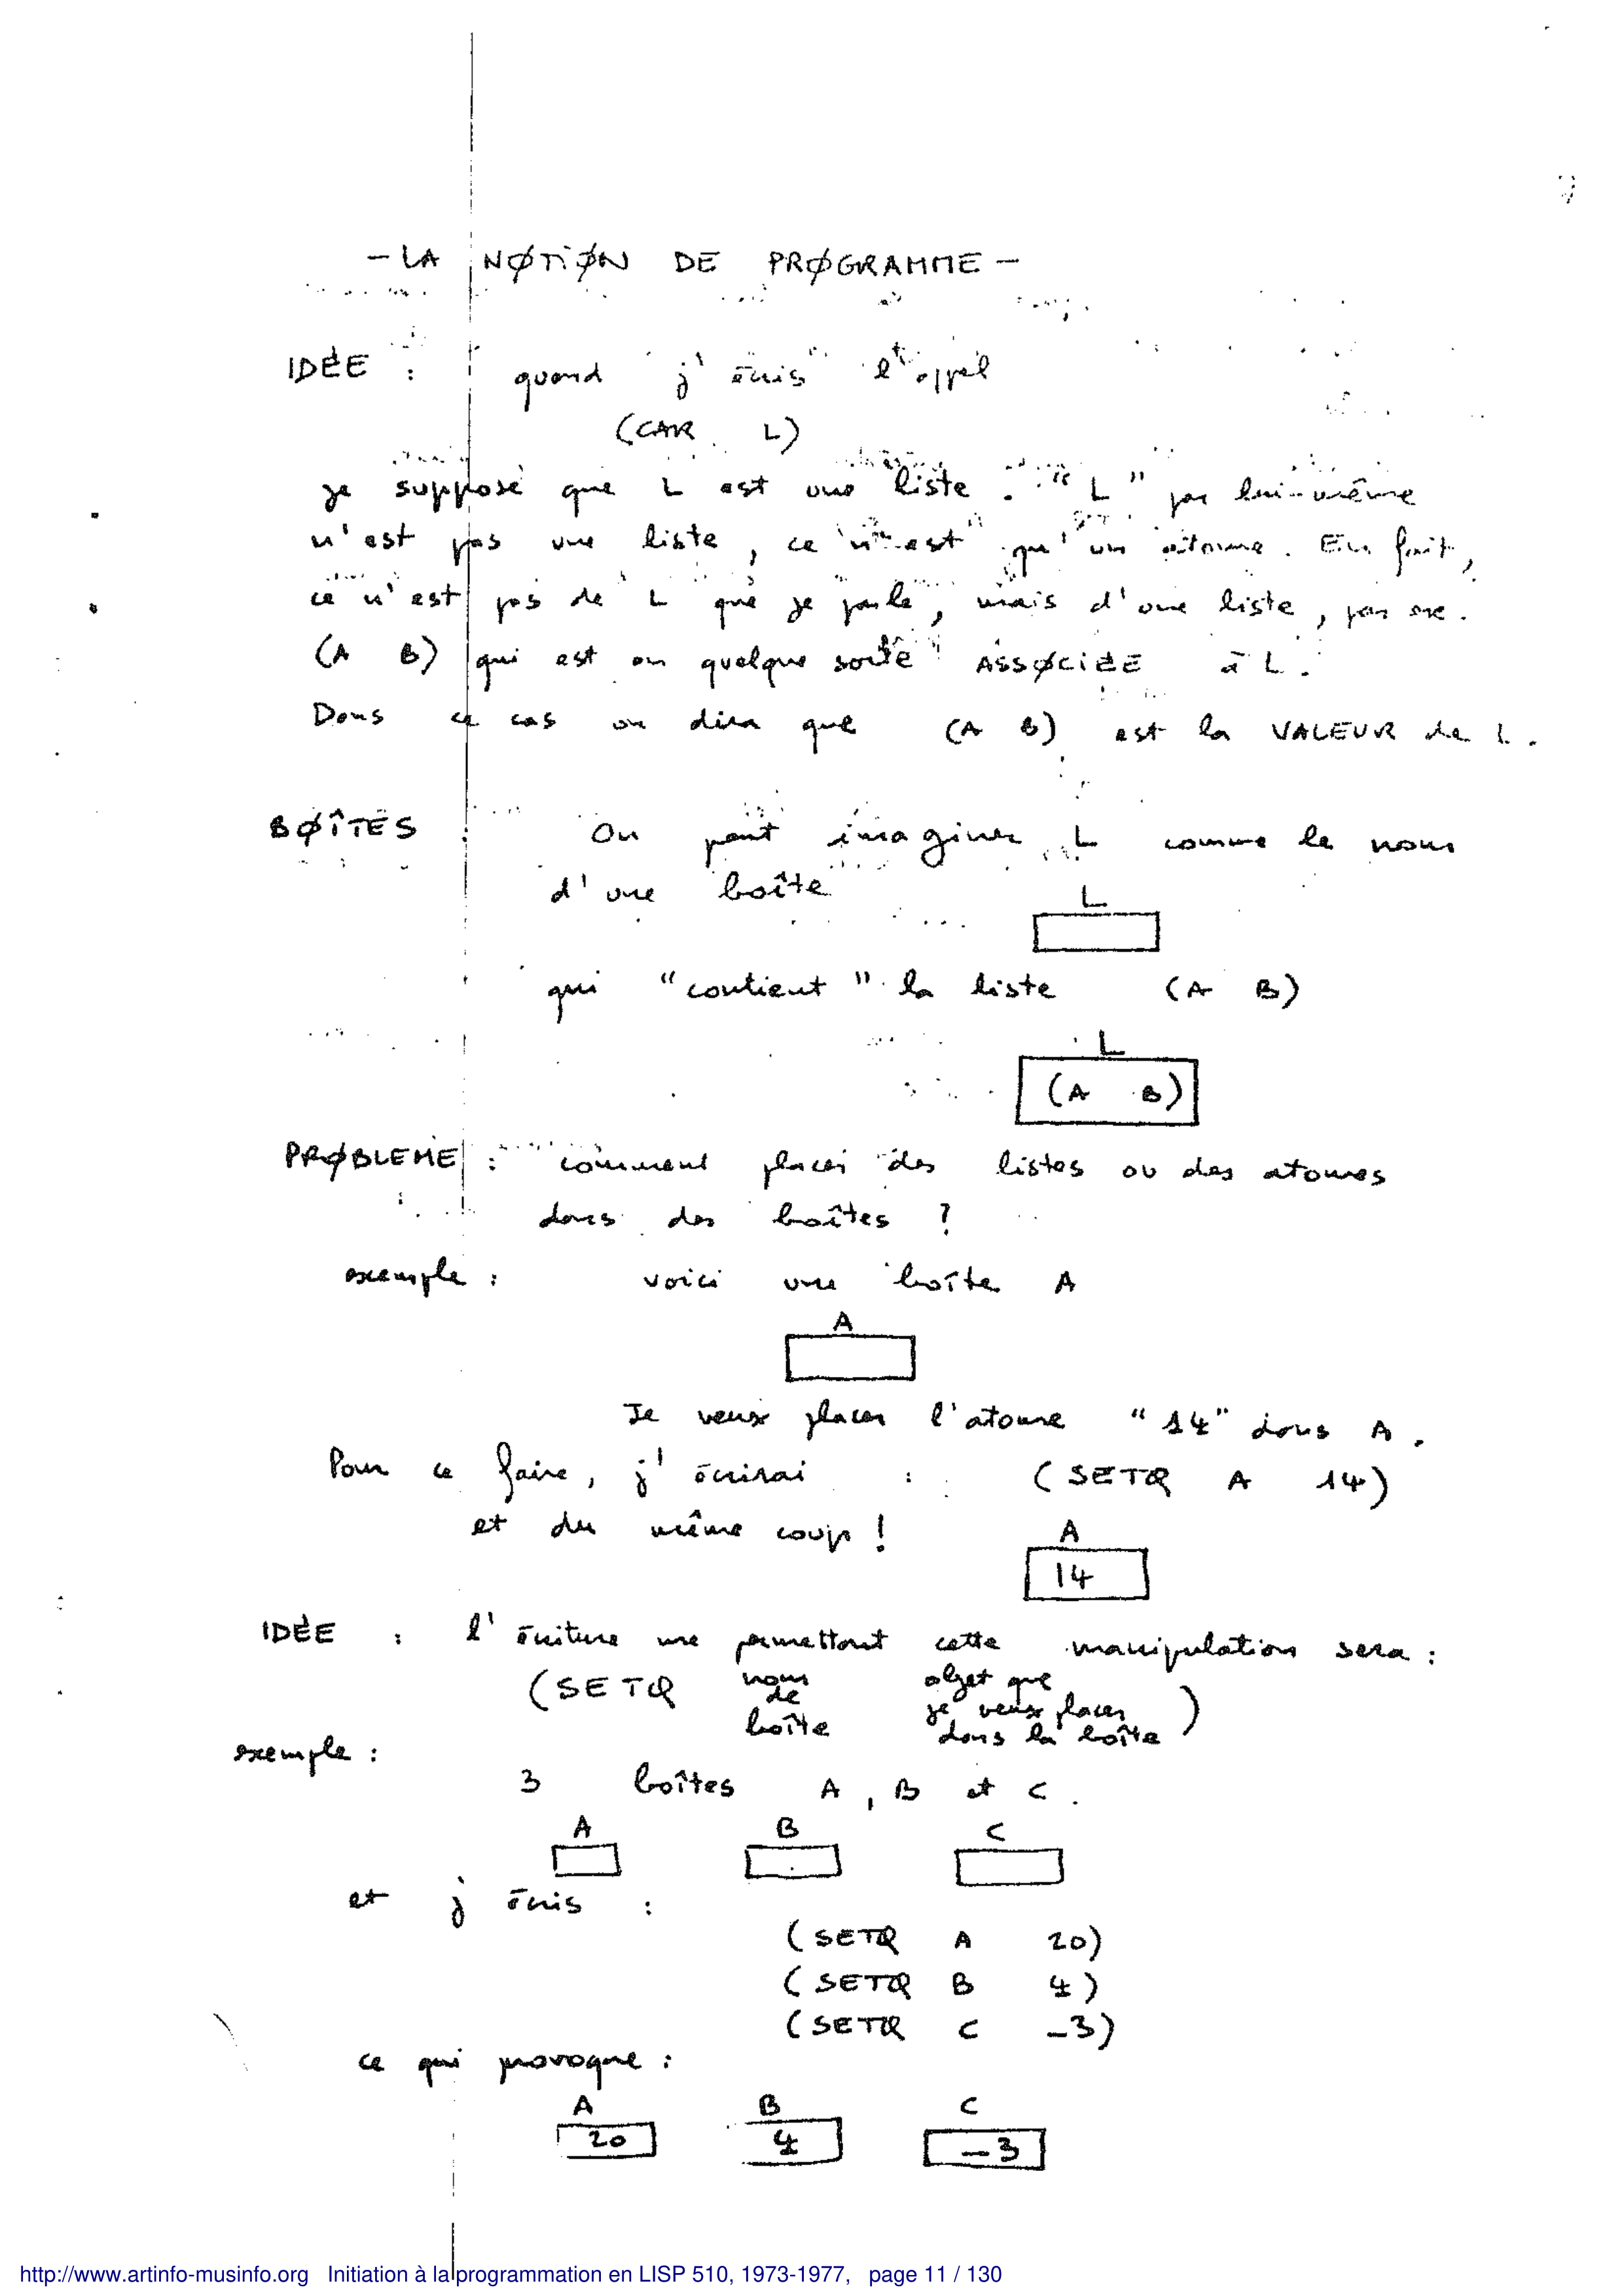 - LA NØTIØN DE PRØGRAMME -
IDÉE : quand j'écris l'appel
(CAR L)
je suppose que L est une liste. "L" par lui-même
n'est pas une liste, ce n'est qu'un atome. En fait,
ce n'est pas de L que je parle, mais d'une liste, par ex.
(A B) qui est en quelque sorte ASSØCIÉE à L.
Dans ce cas on dira que (A B) est la VALEUR de L.
BØÎTES : On peut imaginer L comme le nom
d'une boîte
L
qui "contient" la liste (A B)
L
(A B)
PRØBLEME : comment placer des listes ou des atomes
dans des boîtes ?
exemple : voici une boîte A
A
Je veux placer l'atome "14" dans A.
Pour ce faire, j'écrirai : (SETQ A 14)
et du même coup !
A
14
IDÉE : l'écriture me permettant cette manipulation sera :
(SETQ nom de boîte objet que je veux placer dans la boîte)
exemple :
3 boîtes A, B et C.
A B C
et j'écris :
(SETQ A 20)
(SETQ B 4)
(SETQ C -3)
ce qui provoque :
A B C
20 4 -3
http://www.artinfo-musinfo.org Initiation à la programmation en LISP 510, 1973-1977, page 11 / 130